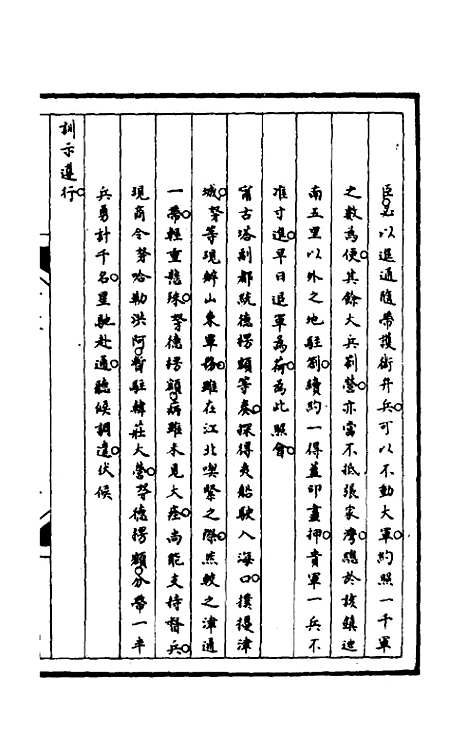 臣必以退通酌帶護衛弁兵可以不動大軍約照一千軍
之數為便其餘大兵劄營亦當不抵張家灣總於該鎮迤
南五里以外之地駐劄續約一得蓋印畫押貴軍一兵不
准寸進早日退軍為荷為此照會
甯古塔副都統德楞額等奏探得夷船駛入海口撲犯津
城努等現辦山東軍務雖在江北喫緊之際然較之津通
一帶輕重懸殊努德楞額病雖未見大痊尚能支持督兵
現商令努哈勒洪阿暫駐韓莊大營努德楞額分帶一半
兵勇計千名星馳赴通聽候調遣伏候
訓示遵行